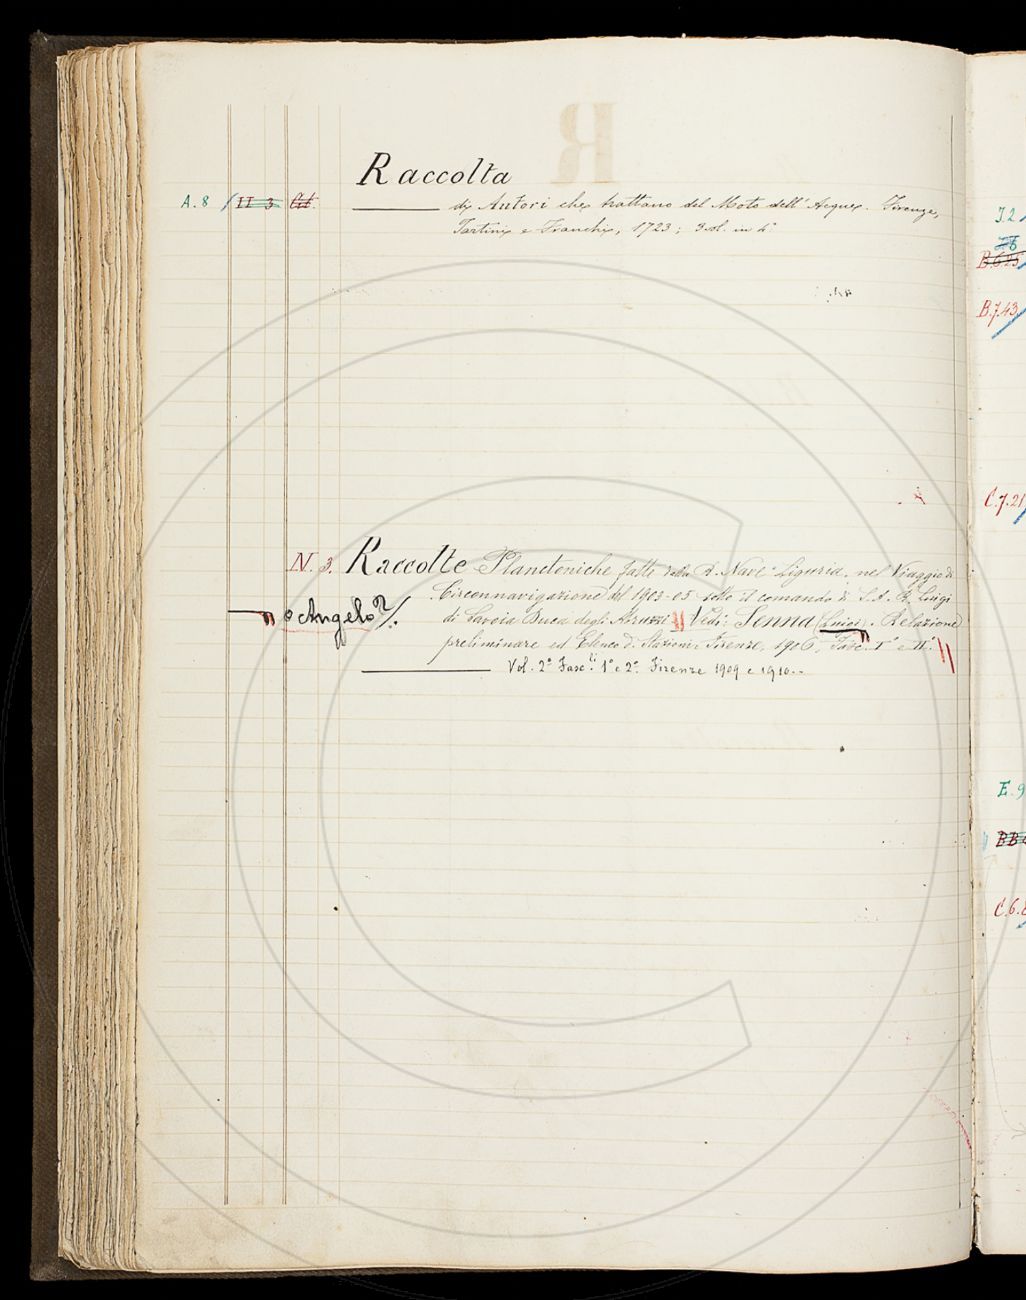 R
Raccolta
A. 8 II 3
di Autori che trattano del Moto dell'Acque. Firenze,
Tartini e Franchi, 1723; 3 vol. in 4°
N. 3. Raccolte Planctoniche fatte dalla R. Nave "Liguria" nel Viaggio di
Circonnavigazione del 1903-05 sotto il comando di S. A. R. Luigi
Angelo?/. di Savoia Duca degli Abruzzi Vedi: Senna (Luigi). Relazione
preliminare ed Elenco d. Stazioni. Firenze, 1906, Fasc. I° e II°.
Vol. 2° Fasc.li 1° e 2° Firenze 1909 e 1910..
J.2
B.6.25
B.7.43
C.7.21
E.9
BB
C.6.